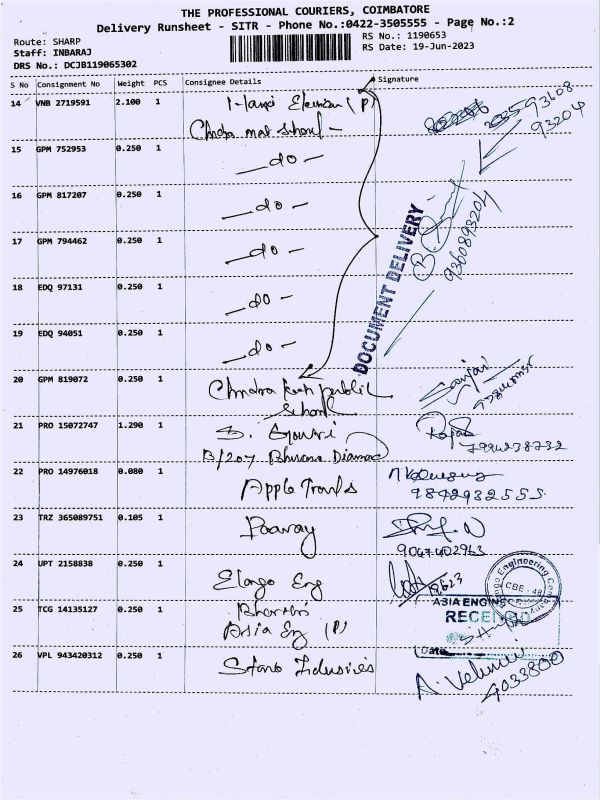 THE PROFESSIONAL COURIERS, COIMBATORE
Delivery Runsheet - SITR - Phone No.:0422-3505555 - Page No.:2
Route: SHARP
Staff: INBARAJ
DRS No.: DCJB119065302
RS No.: 1190653
RS Date: 19-Jun-2023
S No Consignment No Weight PCS Consignee Details Signature
14 VNB 2719591 2.100 1 (P)
93204
15 GPM 752953 0.250 1 —do—
16 GPM 817207 0.250 1 —do—
17 GPM 794462 0.250 1 —do—
18 EDQ 97131 0.250 1 —do—
19 EDQ 94051 0.250 1 —do—
DOCUMENT DELIVERY
9360893204
20 GPM 819072 0.250 1 public
School
21 PRO 15072747 1.290 1 S. Gowri
B/207
7994238732
22 PRO 14976018 0.080 1 Apple
9842932555
23 TRZ 365089751 0.105 1 Paavay
9047402963
24 UPT 2158838 0.250 1 Elango Eng
Engineering Company
CBE - 48
25 TCG 14135127 0.250 1 Bharani
Asia Eng (P)
ASIA ENGIN
RECEIVED
Date
26 VPL 943420312 0.250 1 Industries
A. Velumani
9033800